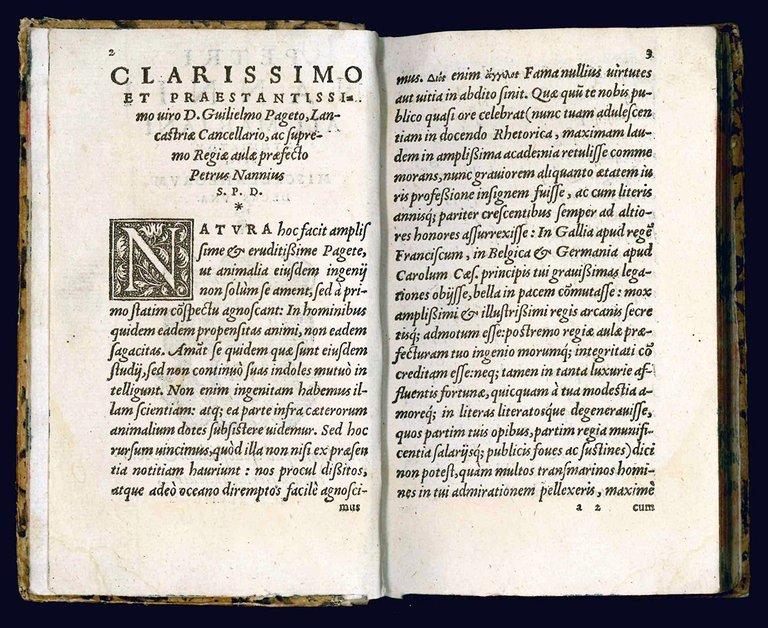 2
CLARISSIMO
ET PRAESTANTISSI-
mo uiro D. Guilielmo Pageto, Lan-
castriæ Cancellario, ac supre-
mo Regiæ aulæ præfecto
Petrus Nannius
S. P. D.
*
NATVRA hoc facit amplis
sime & eruditißime Pagete,
ut animalia eiusdem ingenij
non solùm se ament, sed à pri-
mo statim cōspectu agnoscant: In hominibus
quidem eadem propensitas animi, non eadem
sagacitas. Amāt se quidem quæ sunt eiusdem
studij, sed non continuò suas indoles mutuò in
telligunt. Non enim ingenitam habemus il-
lam scientiam: atq; ea parte infra cæterorum
animalium dotes subsistere uidemur. Sed hoc
rursum uincimus, quòd illa non nisi ex præsen
tia notitiam hauriunt: nos procul dißitos,
atque adeò oceano diremptos facilè agnosci-
mus
3
mus. Διὸς enim ἄγγελος Fama nullius uirtutes
aut uitia in abdito sinit. Quæ quū te nobis pu-
blico quasi ore celebrat (nunc tuam adulescen
tiam in docendo Rhetorica, maximam lau-
dem in amplißima academia retulisse comme
morans, nunc grauiorem aliquanto ætatem iu
ris professione insignem fuisse, ac cum literis
annisq; pariter crescentibus semper ad altio-
res honores assurrexisse: In Gallia apud regē
Franciscum, in Belgica & Germania apud
Carolum Cæs. principis tui grauißimas lega-
tiones obijsse, bella in pacem cōmutasse: mox
amplißimi & illustrißimi regis arcanis secre
tisq; admotum esse: postremo regiæ aulæ præ-
fecturam tuo ingenio morumq; integritati cō
creditam esse: neq; tamen in tanta luxurie af-
fluentis fortunæ, quicquam à tua modestia a-
moreq; in literas literatosque degenerauisse,
quos partim tuis opibus, partim regia munifi-
centia salarijsq; publicis foues ac sustines) dici
non potest, quàm multos transmarinos homi-
nes in tui admirationem pellexeris, maximè
a 2 cum